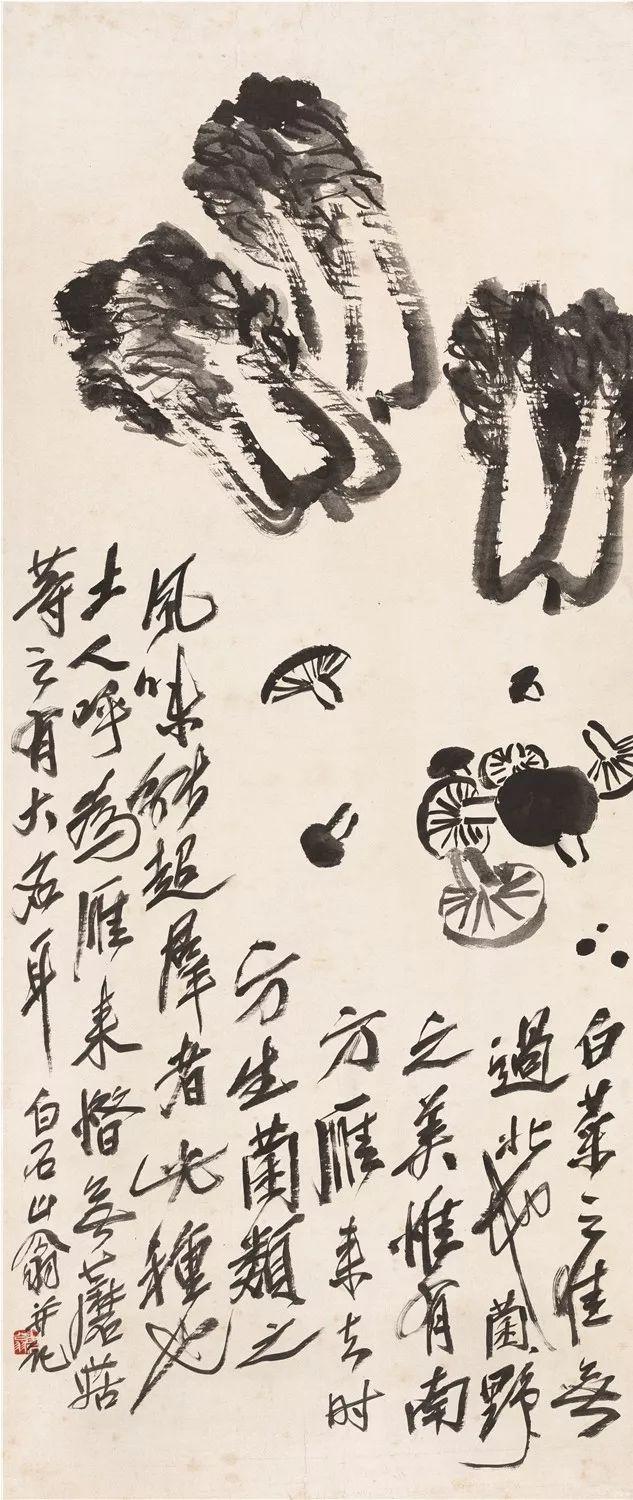 白菜之佳無
過北地菌野
之美惟有南
方雁来去时
方生菌類之
風味能超羣者此種也
土人呼為雁来無蘑菇
等之有大名耳 白石山翁并记